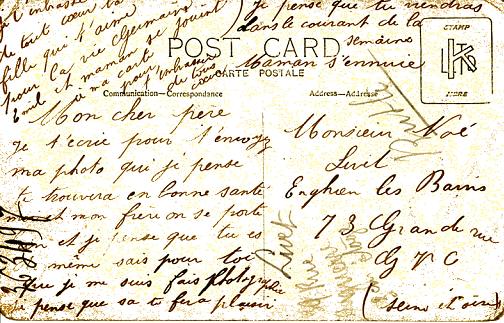 je pense que tu viendras
dans le courant de la
semaine
Maman s'ennuie
t'embrasse
de tout cœur ta
fille qui t'aime
pour la vie Germaine
Emil et maman se joint
à ma carte
pour t'embrasser
de tous
cœur
POST CARD
CARTE POSTALE
Communication—Correspondance
Address—Adresse
STAMP
HERE
Mon cher père
Je t'écrie pour t'envoyez
ma photo qui je pense
te trouvera en bonne santé
et mon frère on se porte
et je pense que tu es
même sais pour toi
que je me suis fais photographie
je pense que sa te fera plaisir
Monsieur Noé
Livet
Enghien les Bains
73 Grande rue
(seine et oise)
Livet